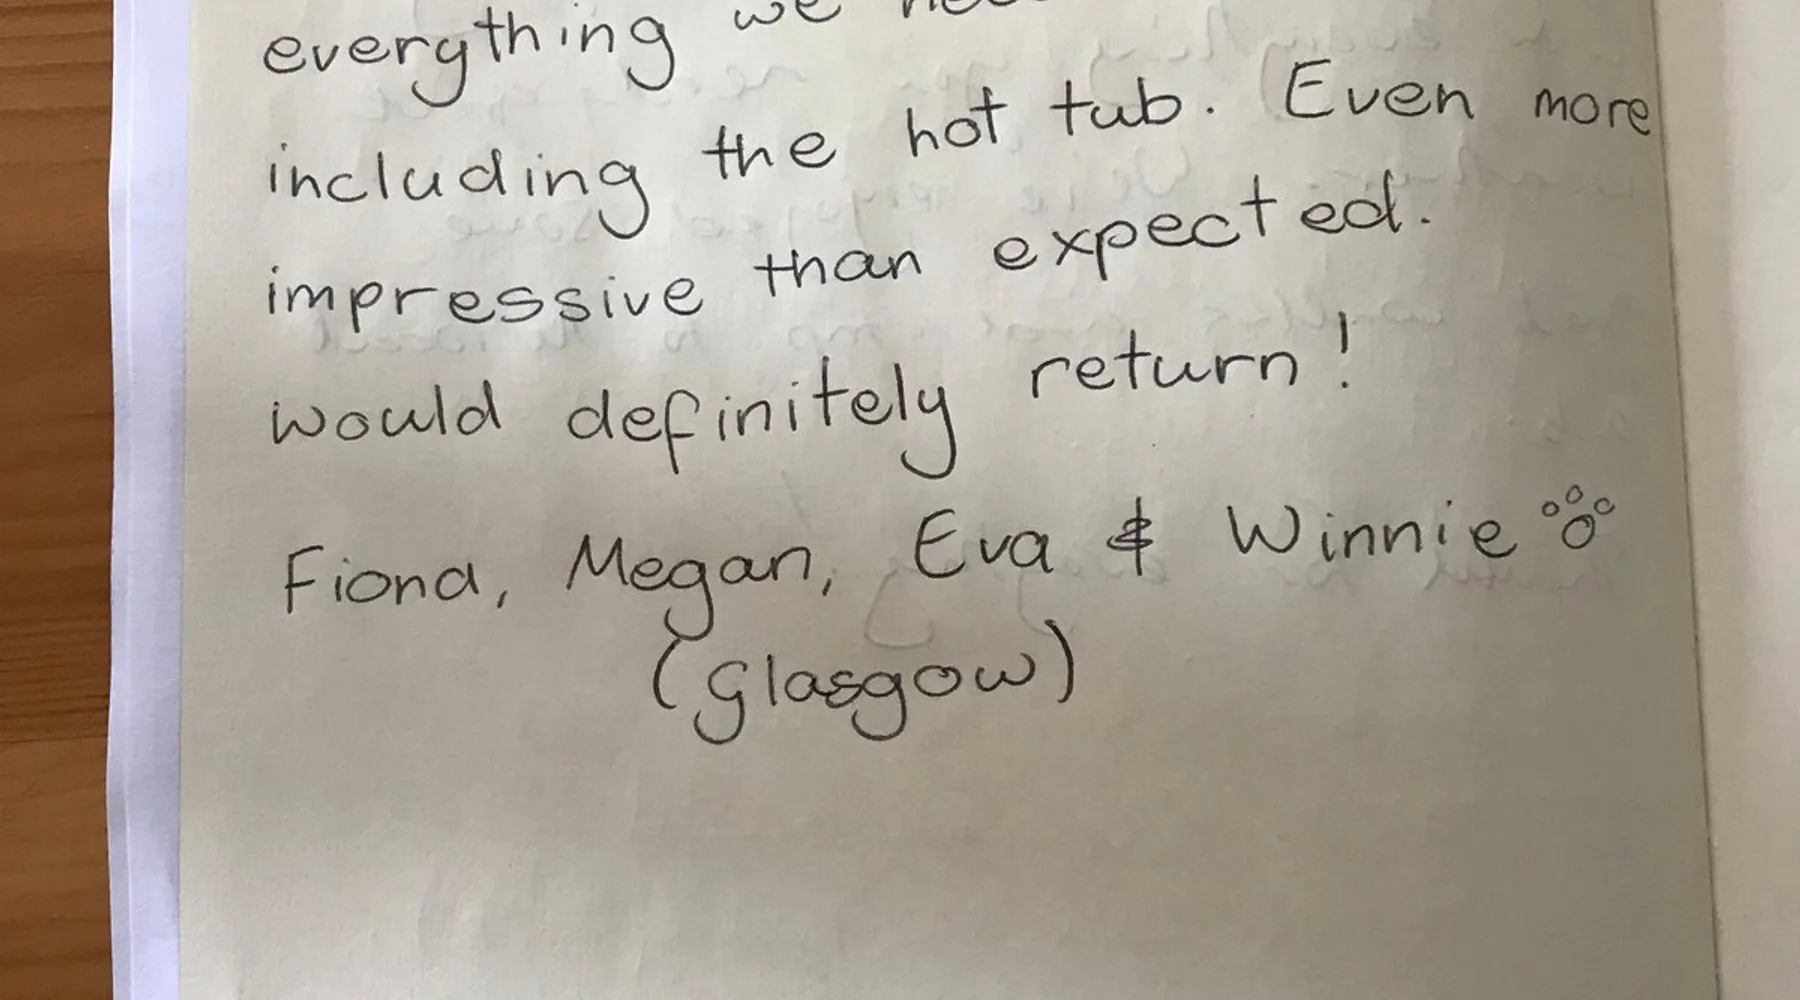 everything we
including the hot tub. Even more
impressive than expected.
would definitely return!
Fiona, Megan, Eva & Winnie
(Glasgow)